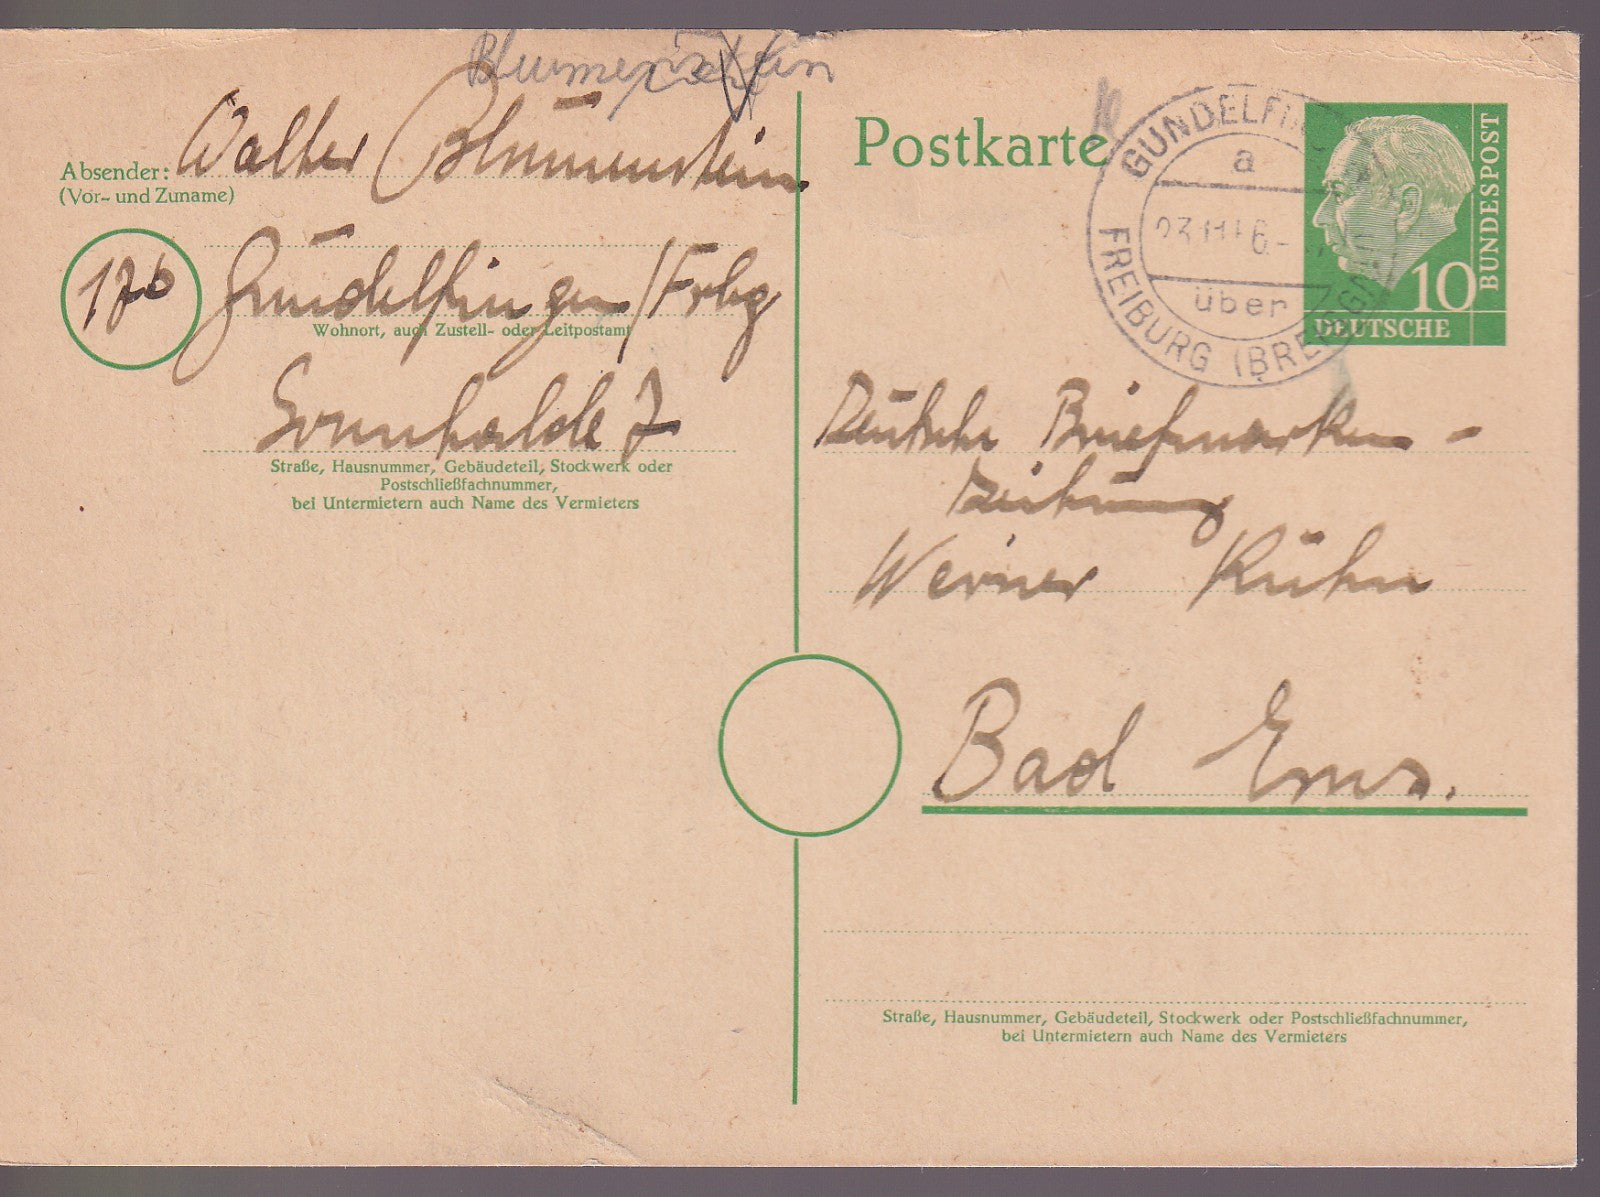 Blumenstein
Absender: Walter Blumenstein
(Vor- und Zuname)
17b Gundelfingen/Frbg
Wohnort, auch Zustell- oder Leitpostamt
Sonnhalde 7
Straße, Hausnummer, Gebäudeteil, Stockwerk oder
Postschließfachnummer,
bei Untermietern auch Name des Vermieters
Postkarte
GUNDELFINGEN
a
über
FREIBURG (BREISGAU)
10
DEUTSCHE
BUNDESPOST
Deutsche Briefmarken-
Zeitung
Werner Kühn
Bad Ems.
Straße, Hausnummer, Gebäudeteil, Stockwerk oder Postschließfachnummer,
bei Untermietern auch Name des Vermieters